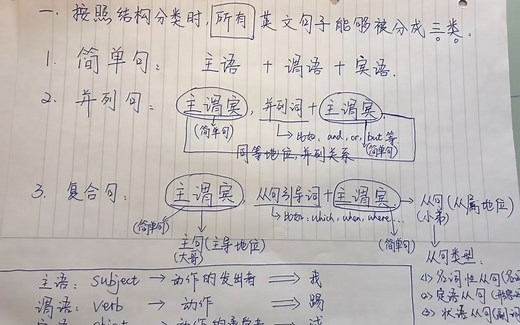 一. 按照结构分类时, 所有 英文句子能够被分成三类.
1. 简单句: 主语 + 谓语 + 宾语.
2. 并列句: 主谓宾, 并列词 + 主谓宾
(简单句) 比如, and, or, but 等 (简单句)
同等地位, 并列关系
3. 复合句: 主谓宾, 从句引导词 + 主谓宾 → 从句 (从属地位)
(简单句) 比如: which, when, where... (简单句) (小弟)
主句 (主导地位)
(大哥)
从句类型:
主语: subject → 动作的发出者 ⇒ 我
<1> 名词性从句
谓语: verb → 动作 ⇒ 踢
<2> 定语从句
<3> 状语从句